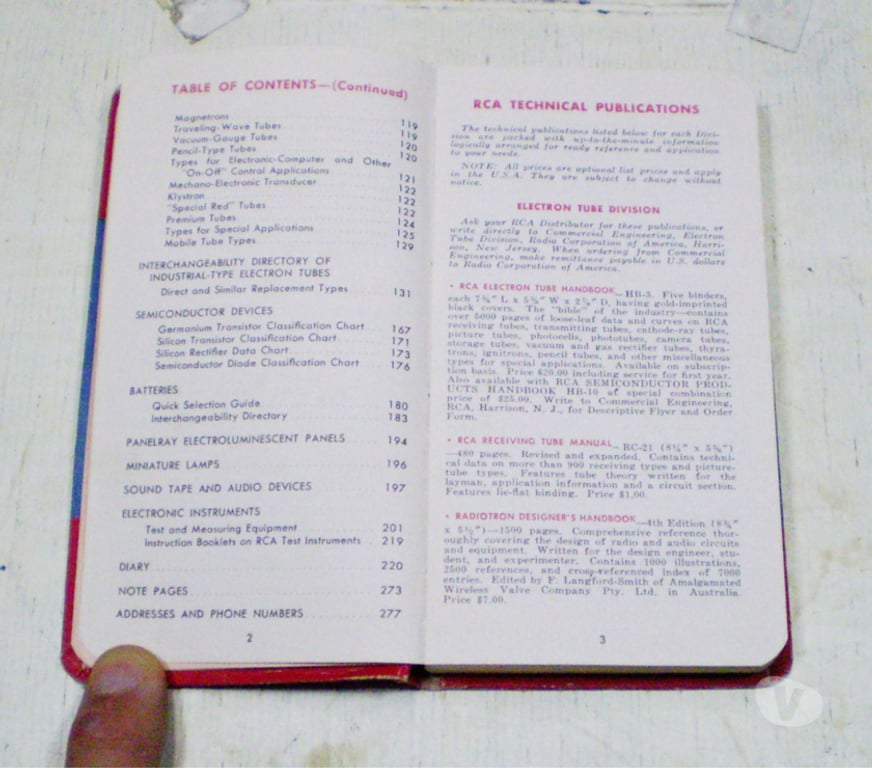 TABLE OF CONTENTS—(Continued)
Magnetrons 119
Traveling-Wave Tubes 119
Vacuum-Gauge Tubes 120
Pencil-Type Tubes 120
Types for Electronic-Computer and Other
"On-Off" Control Applications 121
Mechano-Electronic Transducer 122
Klystron 122
"Special Red" Tubes 122
Premium Tubes 124
Types for Special Applications 125
Mobile Tube Types 129
INTERCHANGEABILITY DIRECTORY OF
INDUSTRIAL-TYPE ELECTRON TUBES
Direct and Similar Replacement Types 131
SEMICONDUCTOR DEVICES
Germanium Transistor Classification Chart 167
Silicon Transistor Classification Chart 171
Silicon Rectifier Data Chart 173
Semiconductor Diode Classification Chart 176
BATTERIES
Quick Selection Guide 180
Interchangeability Directory 183
PANELRAY ELECTROLUMINESCENT PANELS 194
MINIATURE LAMPS 196
SOUND TAPE AND AUDIO DEVICES 197
ELECTRONIC INSTRUMENTS
Test and Measuring Equipment 201
Instruction Booklets on RCA Test Instruments 219
DIARY 220
NOTE PAGES 273
ADDRESSES AND PHONE NUMBERS 277
2
RCA TECHNICAL PUBLICATIONS
The technical publications listed below for each Divi-
sion are packed with up-to-the-minute information
logically arranged for ready reference and application
to your needs.
NOTE: All prices are optional list prices and apply
in the U.S.A. They are subject to change without
notice.
ELECTRON TUBE DIVISION
Ask your RCA Distributor for these publications, or
write directly to Commercial Engineering, Electron
Tube Division, Radio Corporation of America, Harri-
son, New Jersey. When ordering from Commercial
Engineering, make remittance payable in U.S. dollars
to Radio Corporation of America.
• RCA ELECTRON TUBE HANDBOOK—HB-3. Five binders,
each 7⅜" L x 5⅝" W x 2⅞" D, having gold-imprinted
black covers. The "bible" of the industry—contains
over 5000 pages of loose-leaf data and curves on RCA
receiving tubes, transmitting tubes, cathode-ray tubes,
picture tubes, photocells, phototubes, camera tubes,
storage tubes, vacuum and gas rectifier tubes, thyra-
trons, ignitrons, pencil tubes, and other miscellaneous
types for special applications. Available on subscrip-
tion basis. Price $20.00 including service for first year.
Also available with RCA SEMICONDUCTOR PROD-
UCTS HANDBOOK HB-10 at special combination
price of $25.00. Write to Commercial Engineering,
RCA, Harrison, N. J., for Descriptive Flyer and Order
Form.
• RCA RECEIVING TUBE MANUAL—RC-21 (8¼" x 5⅜")
—480 pages. Revised and expanded. Contains techni-
cal data on more than 900 receiving types and picture-
tube types. Features tube theory written for the
layman, application information and a circuit section.
Features lie-flat binding. Price $1.00.
• RADIOTRON DESIGNER'S HANDBOOK—4th Edition (8¾"
x 5½")—1500 pages. Comprehensive reference thor-
oughly covering the design of radio and audio circuits
and equipment. Written for the design engineer, stu-
dent, and experimenter. Contains 1000 illustrations,
2500 references, and cross-referenced index of 7000
entries. Edited by F. Langford-Smith of Amalgamated
Wireless Valve Company Pty. Ltd. in Australia.
Price $7.00.
3
V